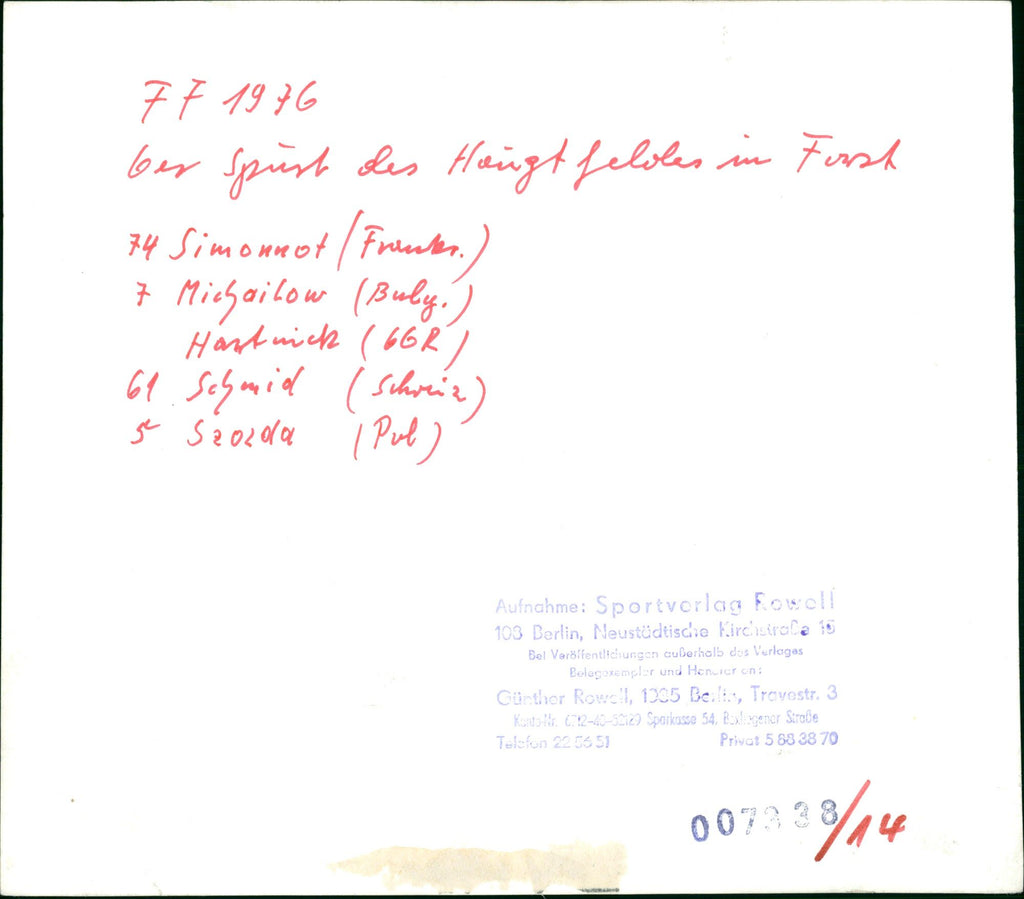 FF 1976
6er Spurt des Hauptfeldes in Forst
74 Simonnot (Frankr.)
7 Michailow (Bulg.)
Hartnick (GGR)
61 Schmid (Schweiz)
5 Szozda (Pol)
Aufnahme: Sportverlag Rowell
108 Berlin, Neustädtische Kirchstraße 15
Bei Veröffentlichungen außerhalb des Verlages
Belegexemplar und Honorar an:
Günther Rowell, 1035 Berlin, Travestr. 3
Konto-Nr. Sparkasse 54, Boxhagener Straße
Telefon 22 56 51 Privat 5 88 38 70
007338/14